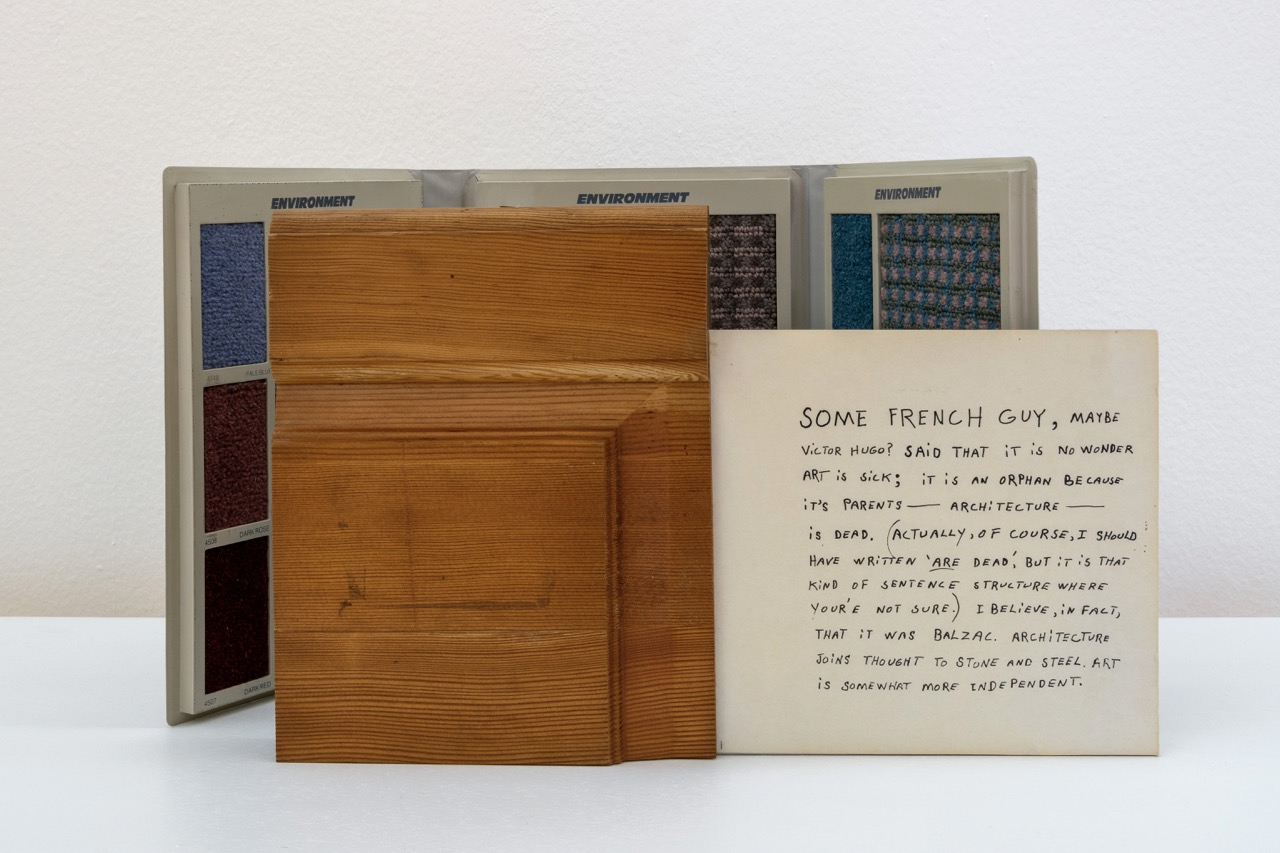 ENVIRONMENT
ENVIRONMENT
ENVIRONMENT
PALE BLUE
4508
DARK ROSE
4507
DARK RED
SOME FRENCH GUY, MAYBE
VICTOR HUGO? SAID THAT IT IS NO WONDER
ART IS SICK; IT IS AN ORPHAN BECAUSE
IT'S PARENTS — ARCHITECTURE —
IS DEAD. (ACTUALLY, OF COURSE, I SHOULD
HAVE WRITTEN 'ARE DEAD', BUT IT IS THAT
KIND OF SENTENCE STRUCTURE WHERE
YOUR'E NOT SURE.) I BELIEVE, IN FACT,
THAT IT WAS BALZAC. ARCHITECTURE
JOINS THOUGHT TO STONE AND STEEL. ART
IS SOMEWHAT MORE INDEPENDENT.